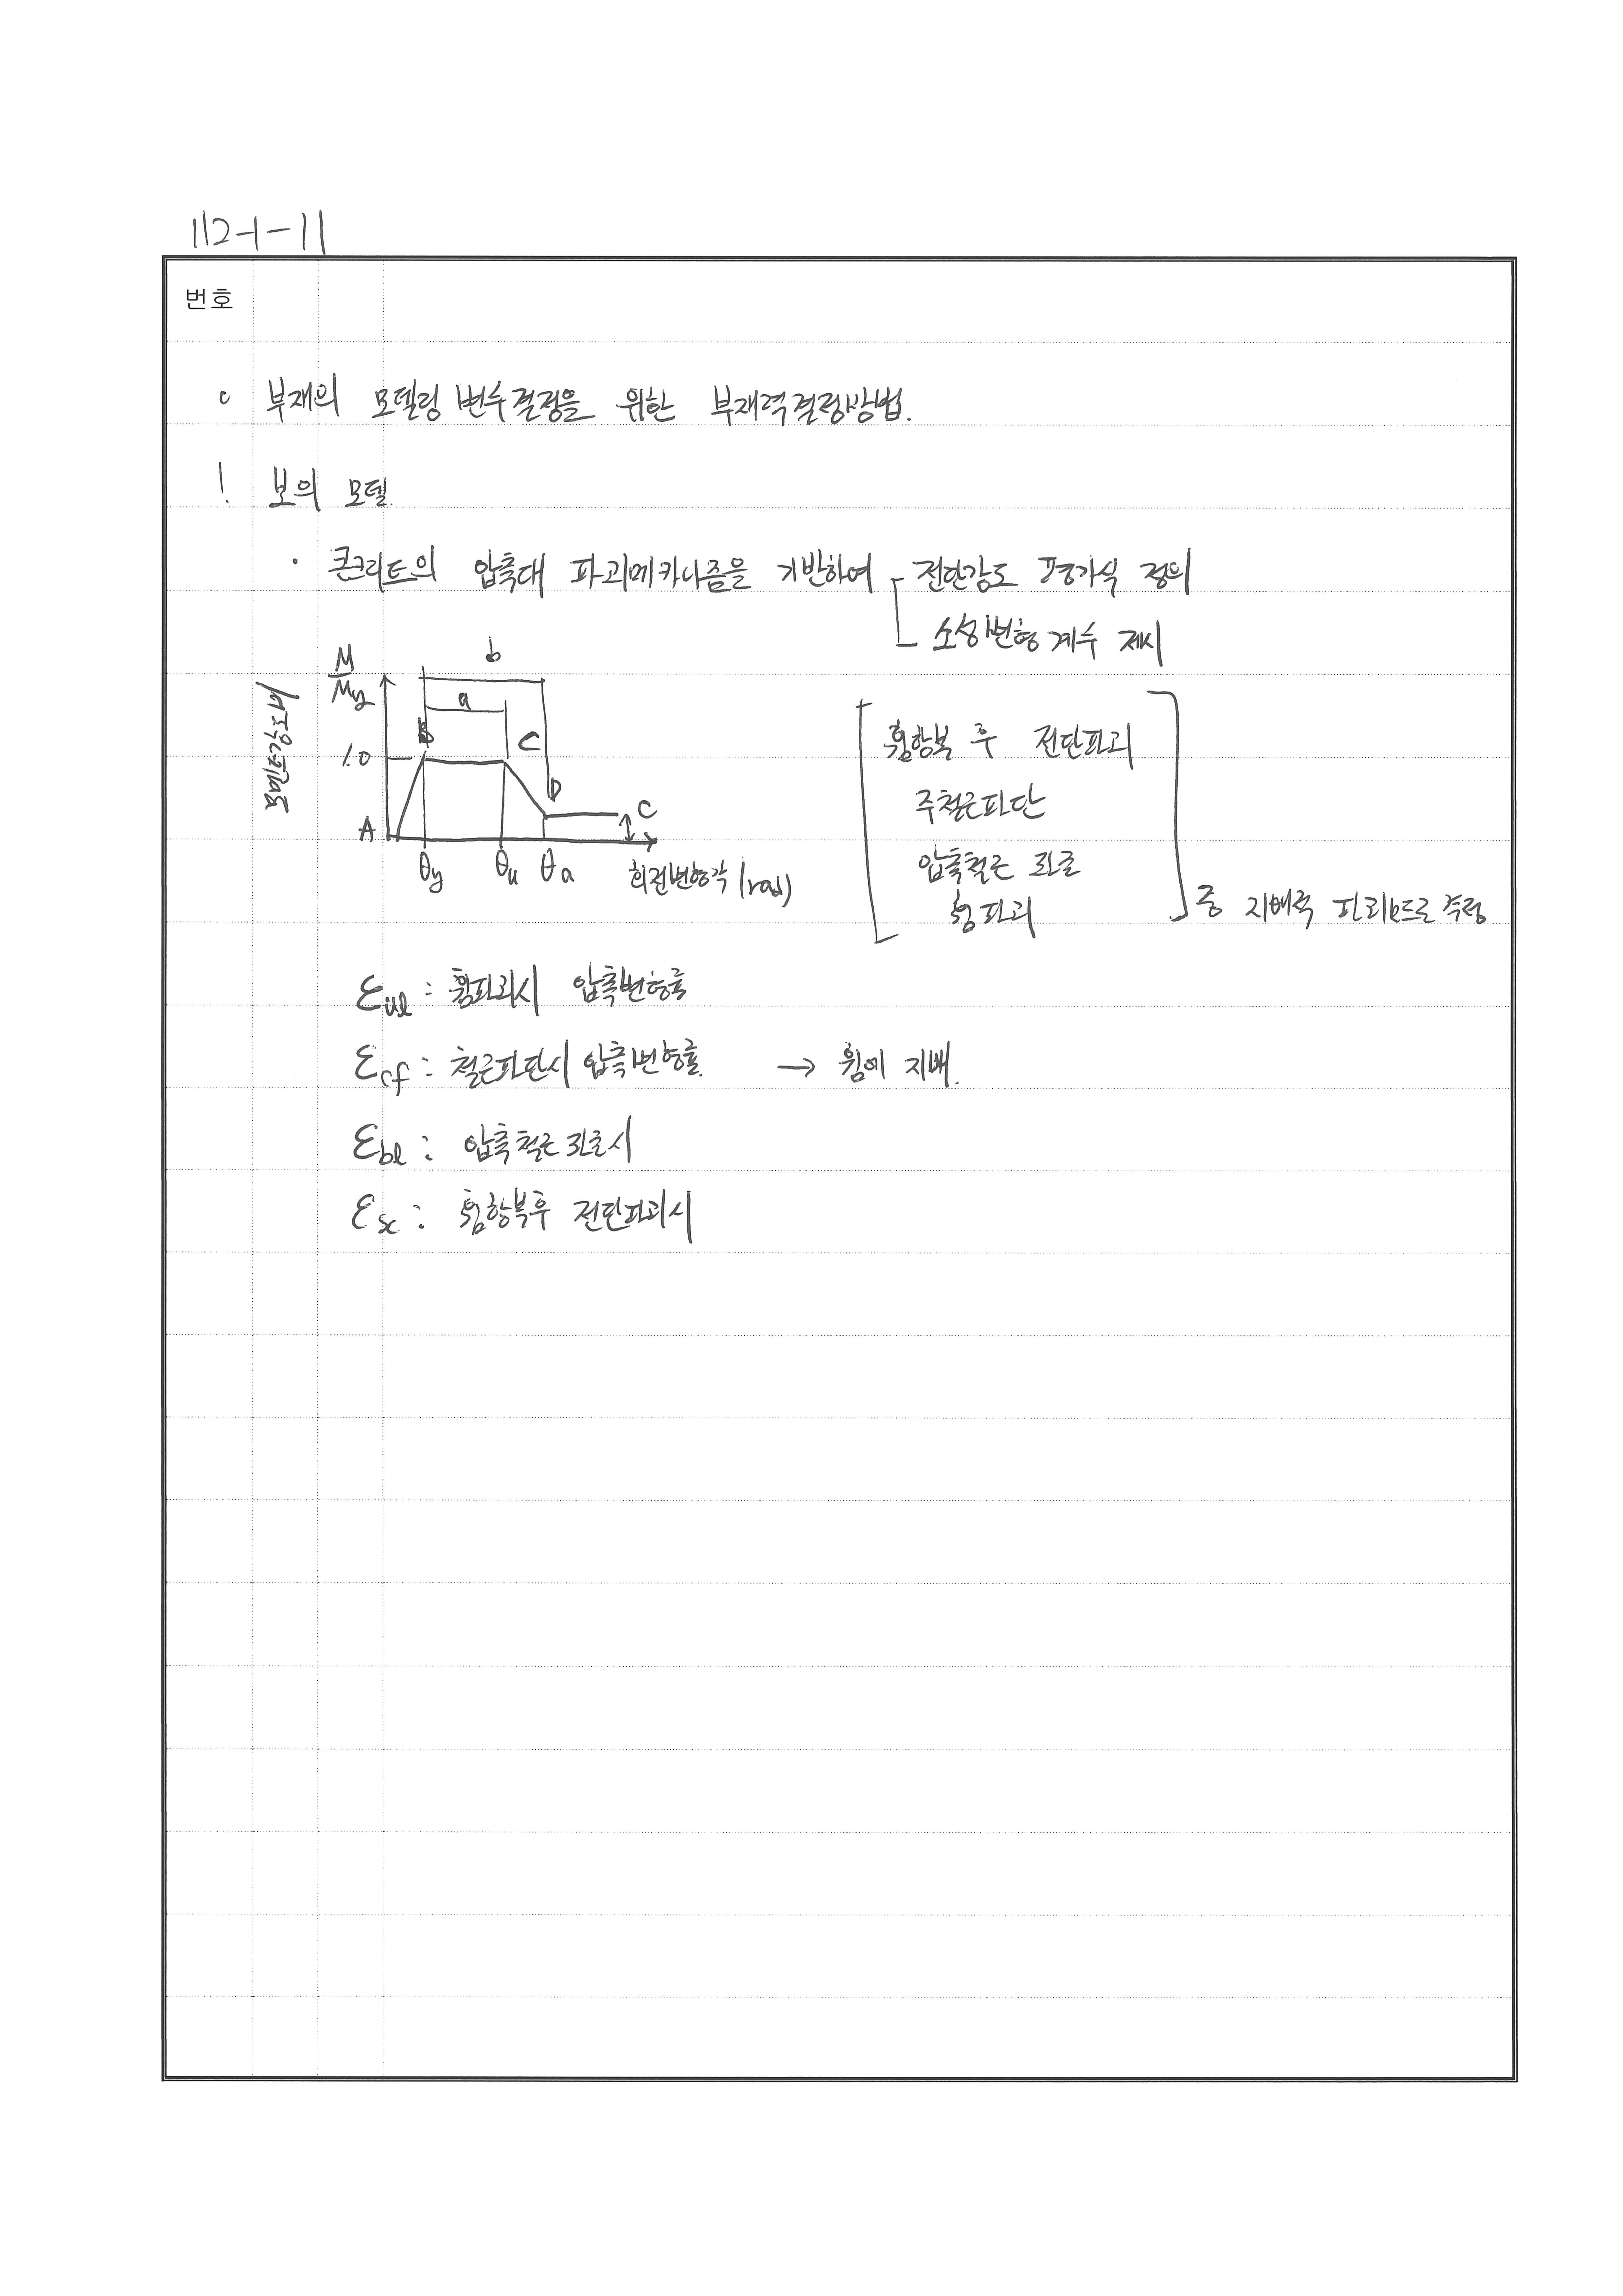 112-1-11
번호
○ 부재의 모델링 변수결정을 위한 부재력결정방법.
1. 보의 모델.
· 콘크리트의 압축대 파괴메카니즘을 기반하여 전단강도 평가식 정의
소성변형 계수 제시
M/My
b
a
B
C
1.0
D
C
A
θy θu θa 회전변형각 (rad)
휨항복 후 전단파괴
주철근파단
압축철근 좌굴
휨파괴
중 지배적 파괴모드로 측정
εul : 휨파괴시 압축변형률
εcf : 철근파단시 압축변형률. → 휨에 지배.
εbl : 압축철근 좌굴시
εsc : 휨항복후 전단파괴시